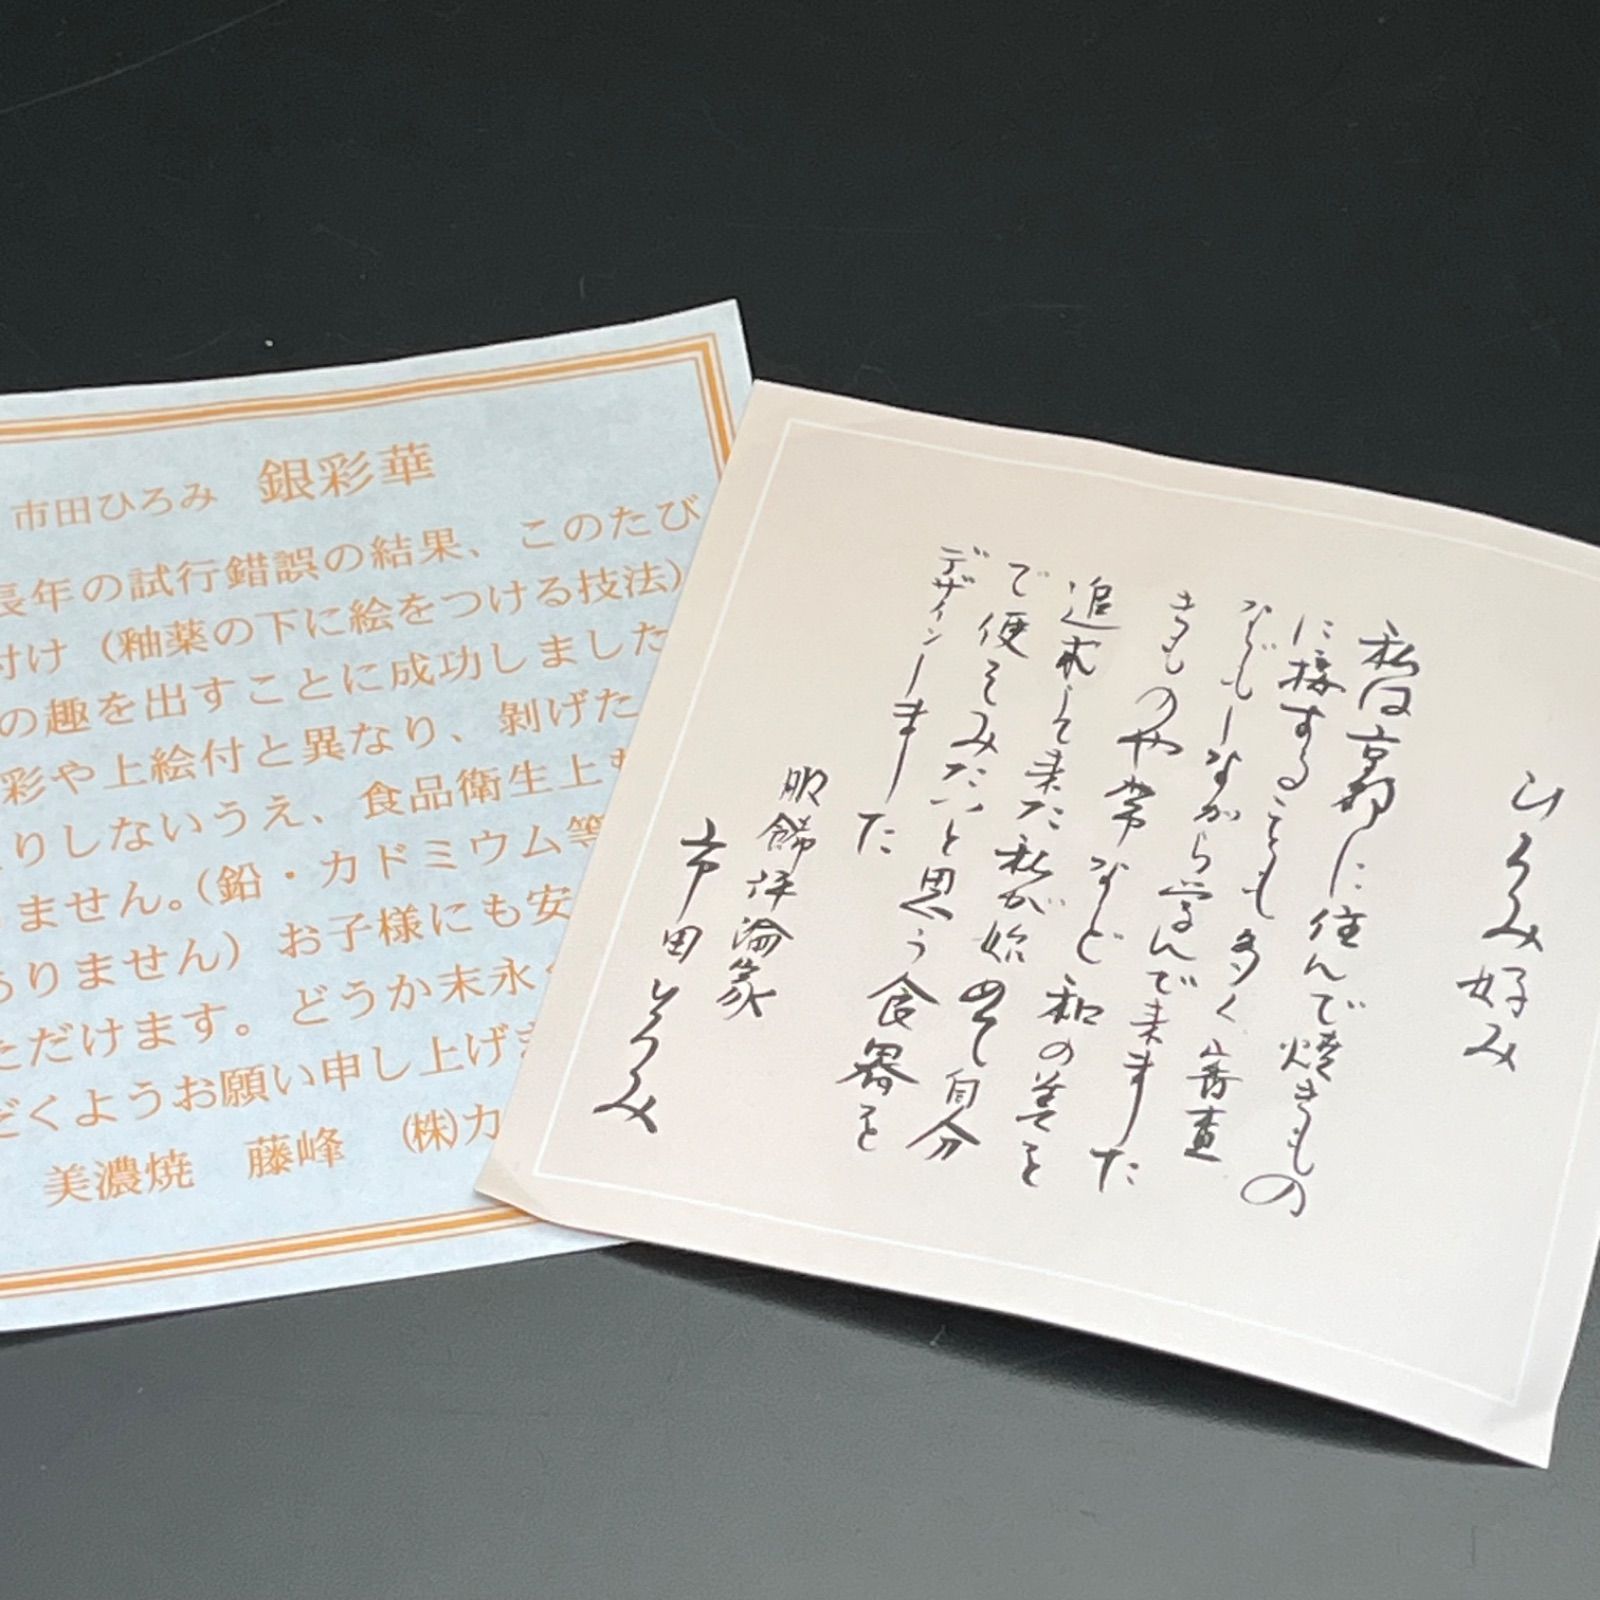 市田ひろみ 銀彩華
長年の試行錯誤の結果、このたび
付け（釉薬の下に絵をつける技法）
の趣を出すことに成功しました
彩や上絵付と異なり、剝げた
りしないうえ、食品衛生上も
ません。（鉛・カドミウム等
ありません）お子様にも安
ただけます。どうか末永
だくようお願い申し上げま
美濃焼 藤峰 ㈱カ
ひろみ好み
私は京都に住んで焼きもの
に接することも多く審査
などもしながら学んで来ました
きものや帯など和の美を
追求して来た私が始めて自分
で使ってみたいと思う食器を
デザインしました
服飾評論家
市田ひろみ